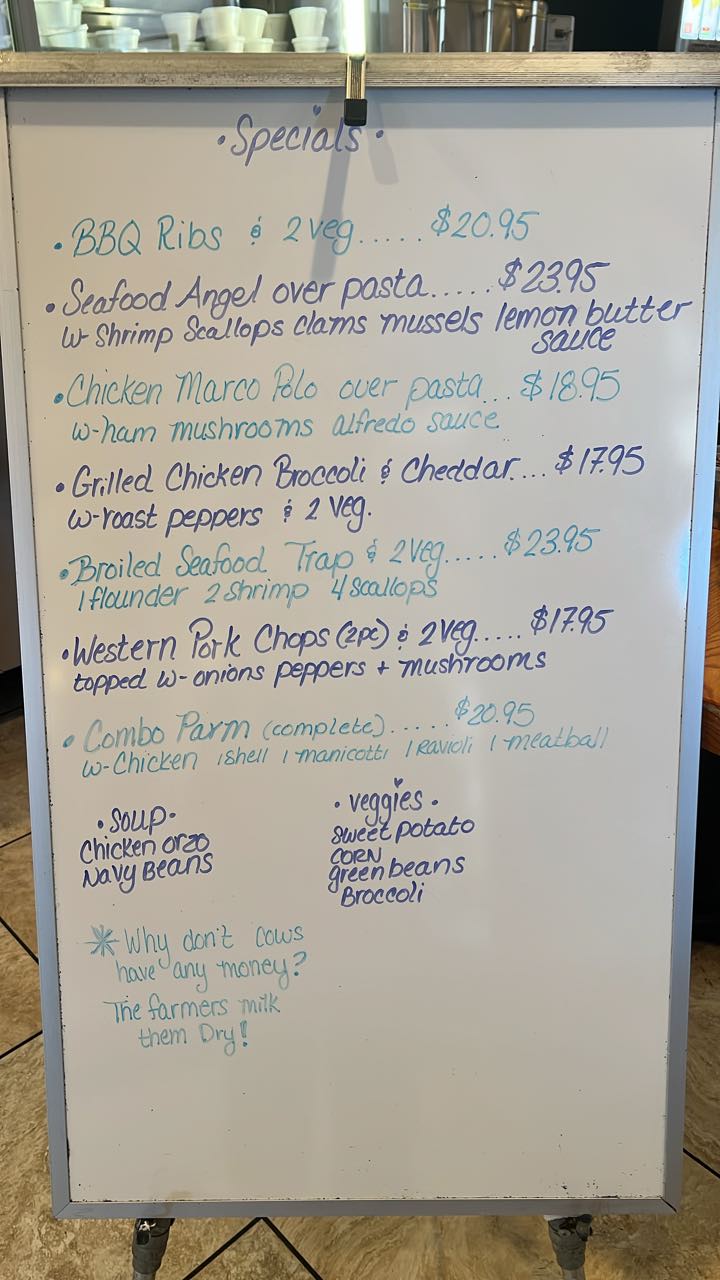 ·Specials·
· BBQ Ribs & 2 veg..... $20.95
· Seafood Angel over pasta..... $23.95
w- Shrimp Scallops clams mussels lemon butter
sauce
· Chicken Marco Polo over pasta... $18.95
w-ham mushrooms alfredo sauce
· Grilled Chicken Broccoli & Cheddar.... $17.95
w-roast peppers & 2 Veg.
· Broiled Seafood Trap & 2 Veg..... $23.95
1 flounder 2 Shrimp 4 Scallops
· Western Pork Chops (2pc) & 2 Veg..... $17.95
topped w- onions peppers + mushrooms
· Combo Parm (complete)..... $20.95
w-Chicken 1 Shell 1 manicotti 1 Ravioli 1 meatball
·Soup·
Chicken orzo
Navy Beans
· veggies ·
sweet potato
CORN
green beans
Broccoli
* Why don't cows
have any money?
The farmers milk
them Dry!